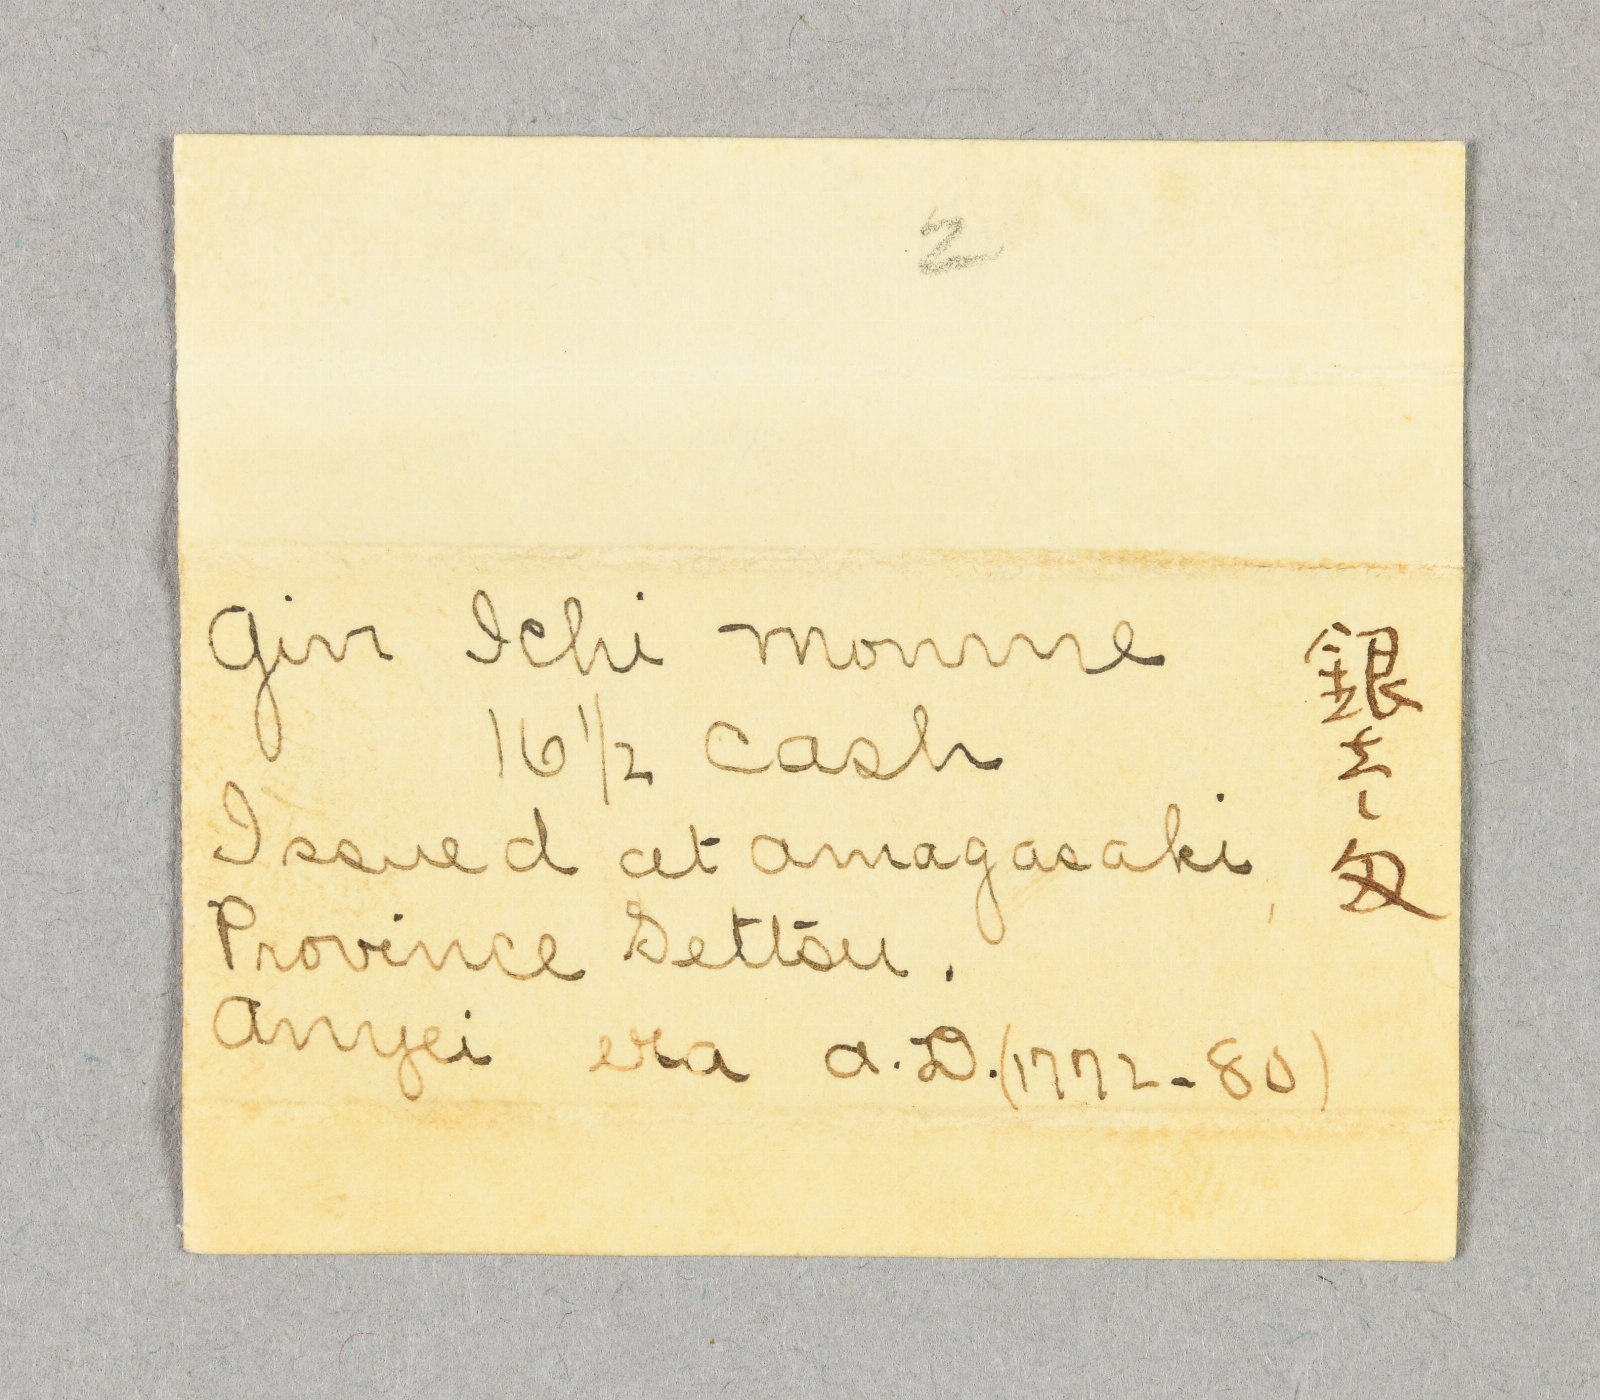 2
Gin Ichi monme
16 1/2 cash
Issued at Amagasaki,
Province Settsu.
Anyei era A.D. (1772-80)
銀壱匁